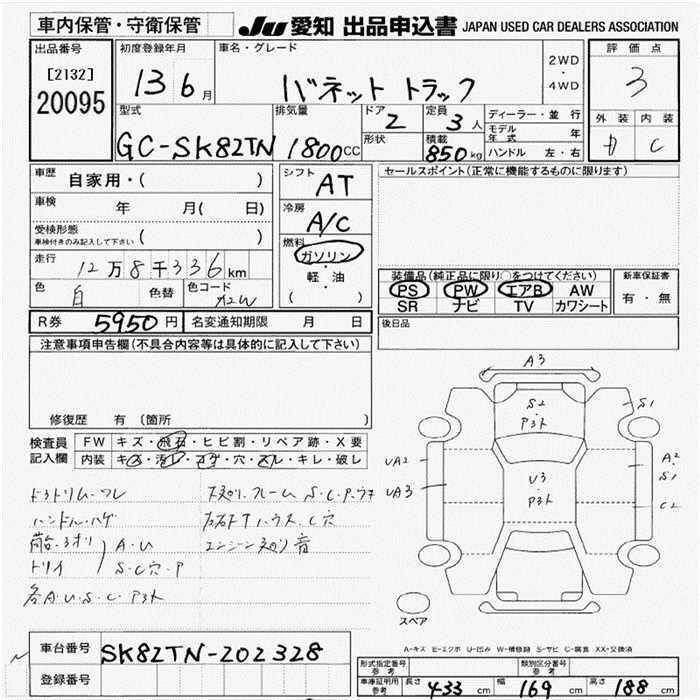 車内保管・守衛保管
JU 愛知 出品申込書 JAPAN USED CAR DEALERS ASSOCIATION
出品番号
[2132]
20095
初度登録年月
13 6月
車名・グレード
バネット トラック
2WD
・
4WD
評価点
3
外装 内装
C
型式
GC-SK82TN
排気量
1800CC
ドア
2
形状
定員
3人
積載
850kg
ディーラー・並行
モデル年式 年
ハンドル 左・右
車歴 自家用・( )
車検 年 月( 日)
受検形態
車検付きのみ記入して下さい ( )
走行 12万8千336km
色 白 色替 色コード
シフト
AT
冷房
A/C
燃料
ガソリン
・
軽・油
( )
セールスポイント(正常に機能するものに限ります)
装備品(純正品に限り○をつけてください)
PS PW エアB AW
SR ナビ TV カワシート
新車保証書
有・無
R券 5950円 名変通知期限 月 日
後日品
注意事項申告欄(不具合内容等は具体的に記入して下さい)
修復歴 有(箇所 )
検査員
記入欄
FW キズ・飛石・ヒビ割・リペア跡・X要
内装 キズ・汚レ・コゲ・穴・スレ・キレ・破レ
ハンドル・ハゲ
A・U
エンジン 音
S・C穴・P
各A・U・S・C・P
A3
S2
S1
UA2
UA3
U3
A2
S1
C2
スペア
A-キズ E-エクボ U-凹み W-補修跡 S-サビ C-腐食 XX-交換済
車台番号 SK82TN-202328
登録番号
形式指定番号
参考
類別区分番号
参考
車庫証明用
参考
長さ 433cm 幅 169cm 高さ 188cm